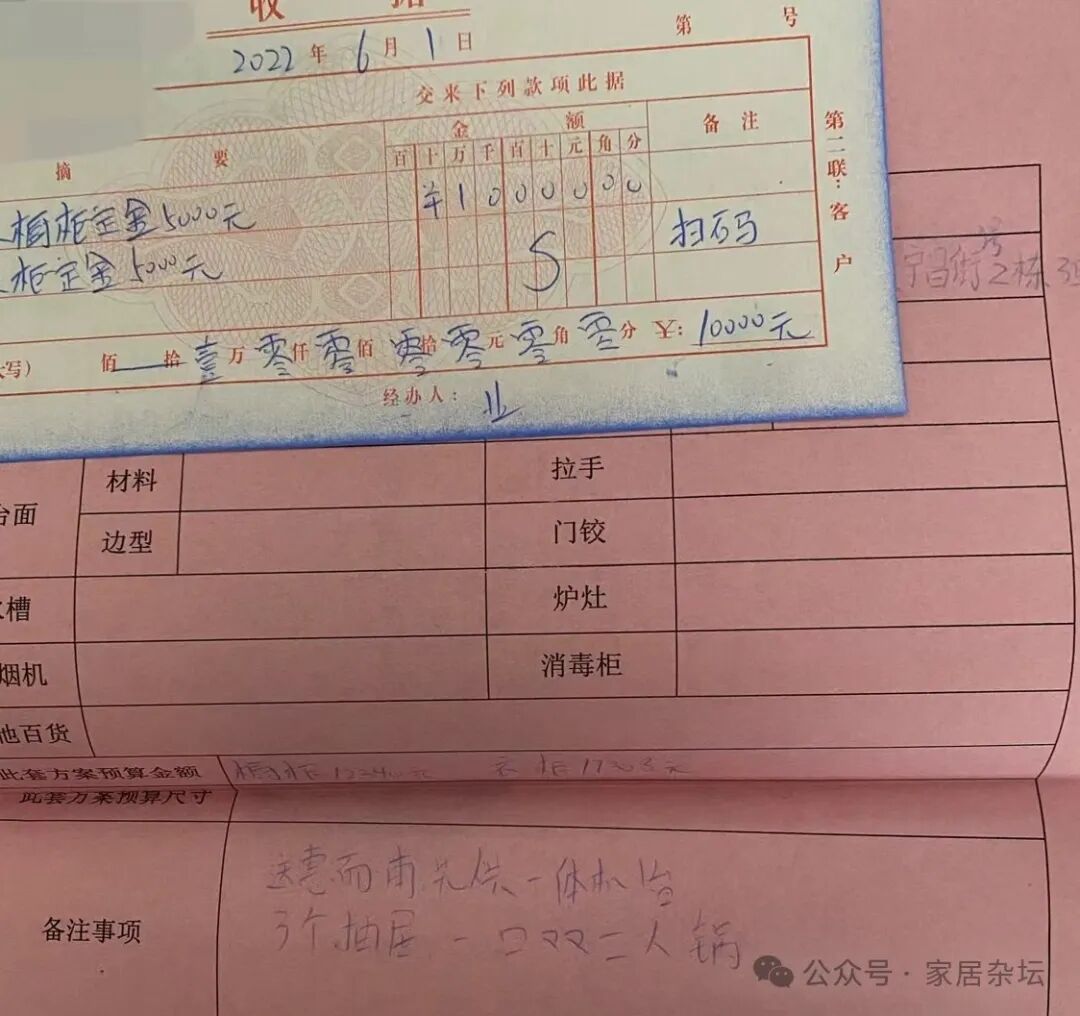 收据
2022年6月1日
第 号
交来下列款项此据
摘 要
金 额
备 注
百十万千百十元角分
橱柜定金5000元
¥1000000
柜定金5000元
扫码
第二联：客户
佰 拾壹万零仟零佰零拾零元零角零分 ¥：10000元
经办人：
号
宁昌街2栋
台面
材料
拉手
边型
门铰
水槽
炉灶
烟机
消毒柜
他百货
此套方案预算金额
橱柜 元 衣柜 元
此套方案预算尺寸
备注事项
一体机1台
3个抽屉
锅
公众号·家居杂坛